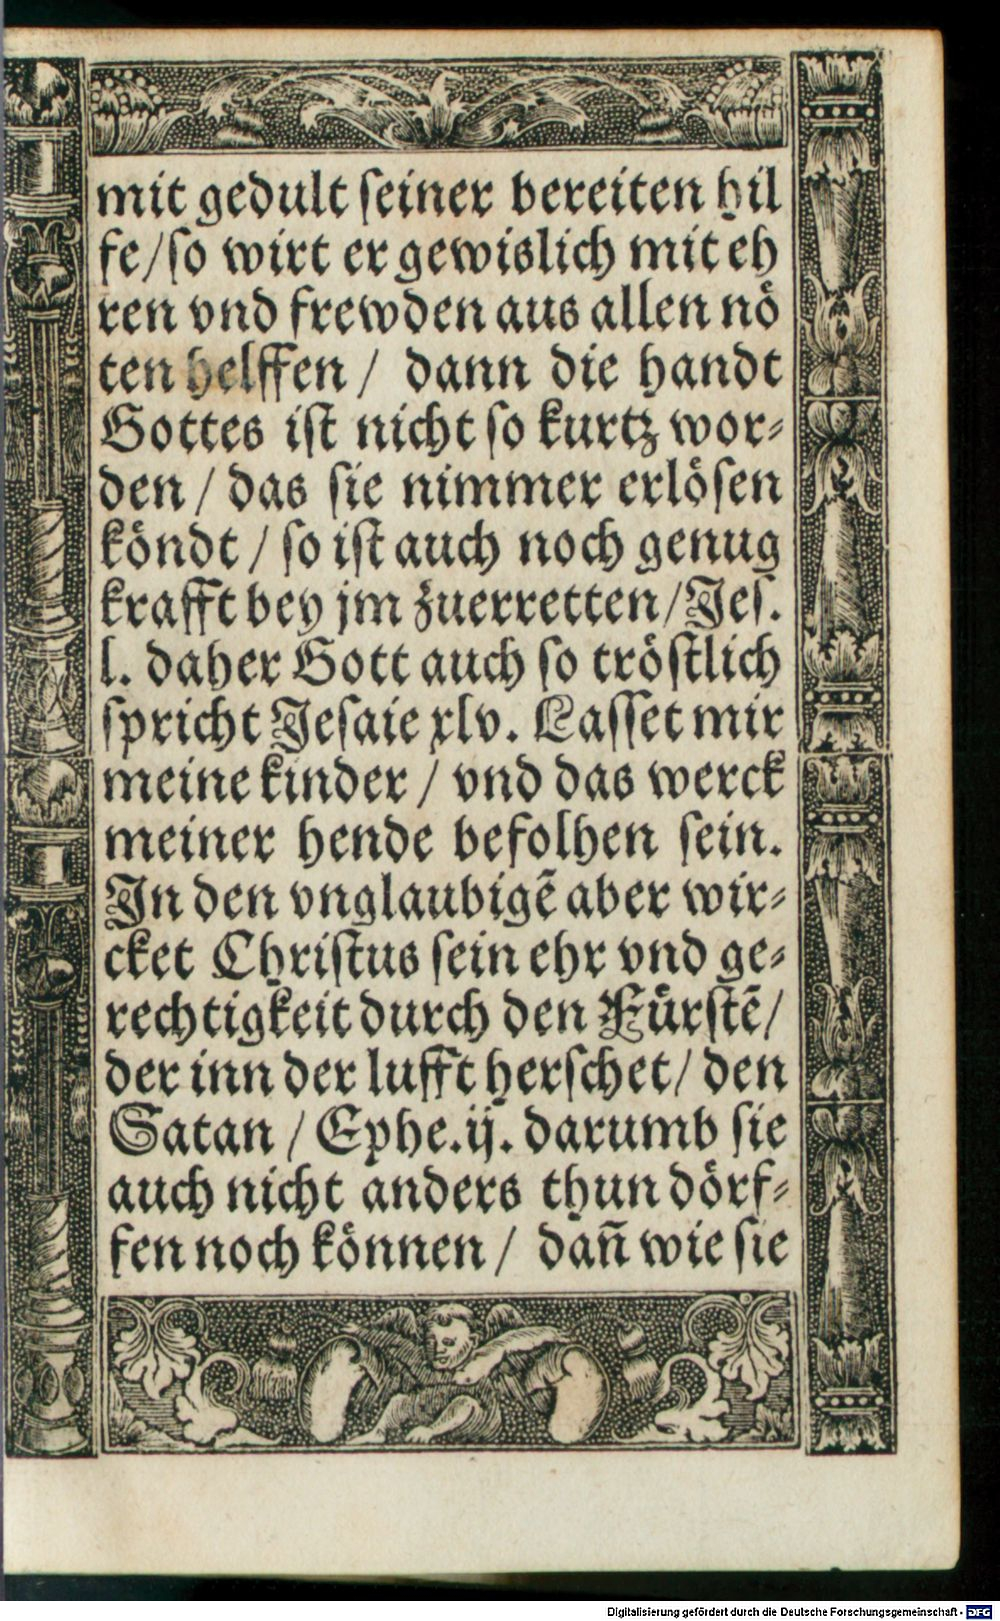 mit gedult seiner bereiten hil
fe/so wirt er gewislich mit eh
ren vnd frewden aus allen nö
ten helffen / dann die handt
Gottes ist nicht so kurtz wor-
den / das sie nimmer erlösen
köndt / so ist auch noch genug
krafft bey jm zuerretten/Jes.
l. daher Gott auch so tröstlich
spricht Jesaie xlv. Lasset mir
meine kinder / vnd das werck
meiner hende befolhen sein.
In den vnglaubigẽ aber wir-
cket Christus sein ehr vnd ge-
rechtigkeit durch den Fürstẽ/
der inn der lufft herschet/ den
Satan / Ephe.ij. darumb sie
auch nicht anders thun dörf-
fen noch können / dañ wie sie
Digitalisierung gefördert durch die Deutsche Forschungsgemeinschaft - DFG